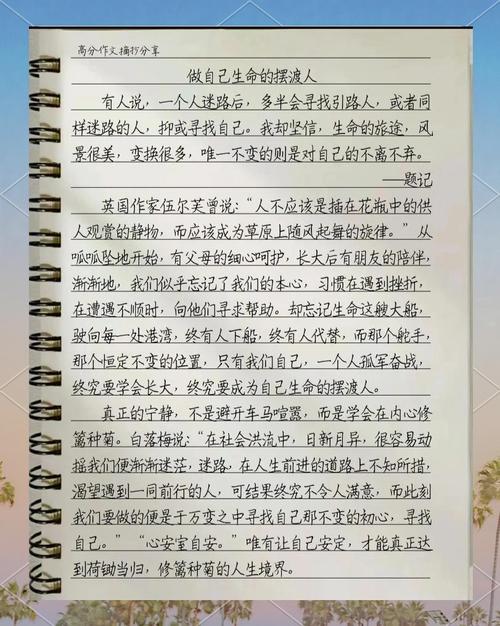 高分作文摘抄分享
做自己生命的摆渡人
有人说，一个人迷路后，多半会寻找引路人，或者同
样迷路的人，抑或寻找自己。我却坚信，生命的旅途，风
景很美，变换很多，唯一不变的则是对自己的不离不弃。
——题记
英国作家伍尔芙曾说：“人不应该是插在花瓶中的供
人观赏的静物，而应该成为草原上随风起舞的旋律。”从
呱呱坠地开始，有父母的细心呵护，长大后有朋友的陪伴，
渐渐地，我们似乎忘记了我们的本心，习惯在遇到挫折，
在遭遇不顺时，向他们寻求帮助。却忘记生命这艘大船，
驶向每一处港湾，终有人下船，终有人代替，而那个舵手，
那个恒定不变的位置，只有我们自己，一个人孤军奋战，
终究要学会长大，终究要成为自己生命的摆渡人。
真正的宁静，不是避开车马喧嚣，而是学会在内心修
篱种菊。白落梅说：“在社会洪流中，日新月异，很容易动
摇我们便渐渐迷茫，迷路，在人生前进的道路上不知所措，
渴望遇到一同前行的人，可结果终究不令人满意，而此刻
我们要做的便是于万变之中寻找自己那不变的初心，寻找
自己。”“心安室自安。”唯有让自己安定，才能真正达
到荷锄当归，修篱种菊的人生境界。